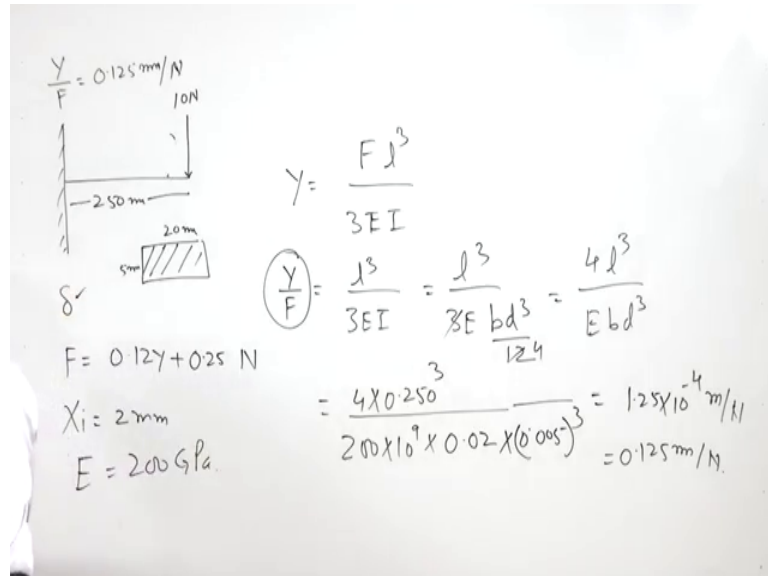 Y/F = 0.125 mm/N
10N
250 m
20 m
5m
δ
F = 0.12Y + 0.25 N
Xi = 2mm
E = 200GPa.
Y = Fl³/3EI
Y/F = l³/3EI = l³/(3E bd³/12 4) = 4l³/Ebd³
= 4X0.250³/(200X10⁹ X 0.02 X (0.005)³) = 1.25X10⁻⁴ m/N
= 0.125 m/N.